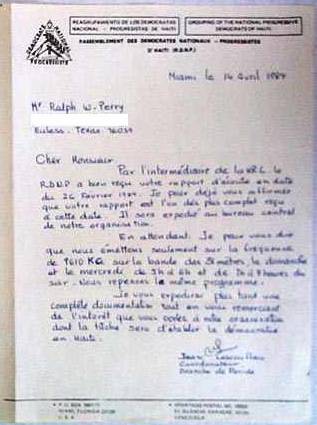 REAGRUPAMIENTO DE LOS DEMOCRATAS
NACIONAL - PROGRESISTAS DE HAITI
GROUPING OF THE NATIONAL PROGRESSIVE
DEMOCRATS OF HAITI
RASSEMBLEMENT DES DEMOCRATES NATIONAUX - PROGRESSISTES
D'HAITI (R.D.N.P.)
Miami le 14 Avril 1984
Mr Ralph W. Perry
Euless - Texas 76039
Cher Monsieur
Par l'intermédiaire de la le
R.D.N.P a bien reçu votre rapport d'écoute en date
du 26 Février 1984. Je peux déjà vous affirmer
que votre rapport est l'un des plus complet reçu
à cette date. Il sera expedié au bureau central
de notre organisation.
En attendant. Je peux vous dire
que nous émettons seulement sur la fréquence
de sur la bande des mètres, le dimanche
et le mercredi de et de heures du
soir. Nous repetons le même programme.
Je vous expedirai plus tard une
complète documentation tout en vous remerciant
de l'interêt que vous portez à notre organisation
dont la tâche sera d'établir la démocratie
en Haiti.
Jean
Coordonateur
Branche de Floride
P.O. BOX
MIAMI, FLORIDA
U.S.A
APARTADO POSTAL NO.
VENEZUELA